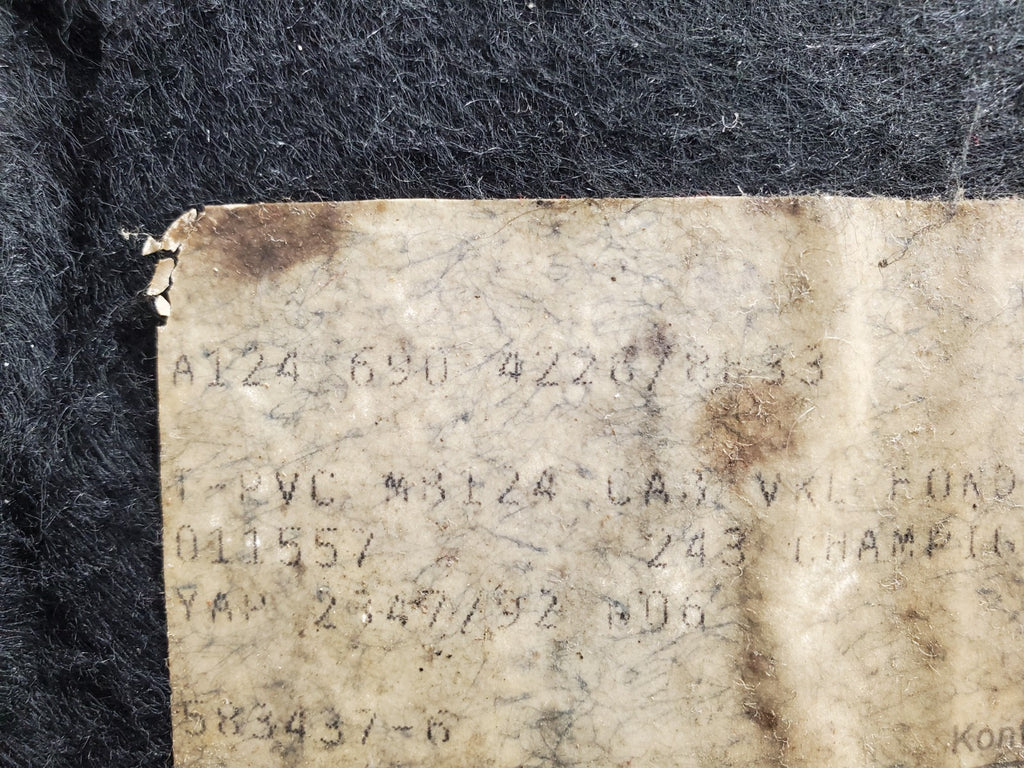 A124 690 4226/8H33
T-PVC MB124 CAB VKL FOND
011557 243 CHAMPIG
YAP 2347/92 N06
583437-6
Kont